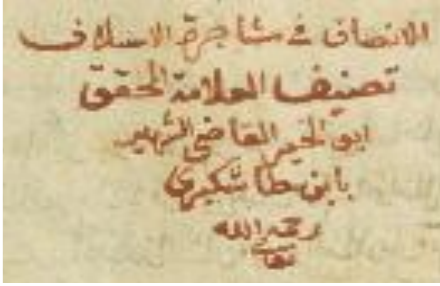 الانصاف في مشاجرة الاسلاف
تصنيف العلامة المحقق
ابو الخير القاضي الشهير
بابن طاشكبري
رحمه الله
تعالى